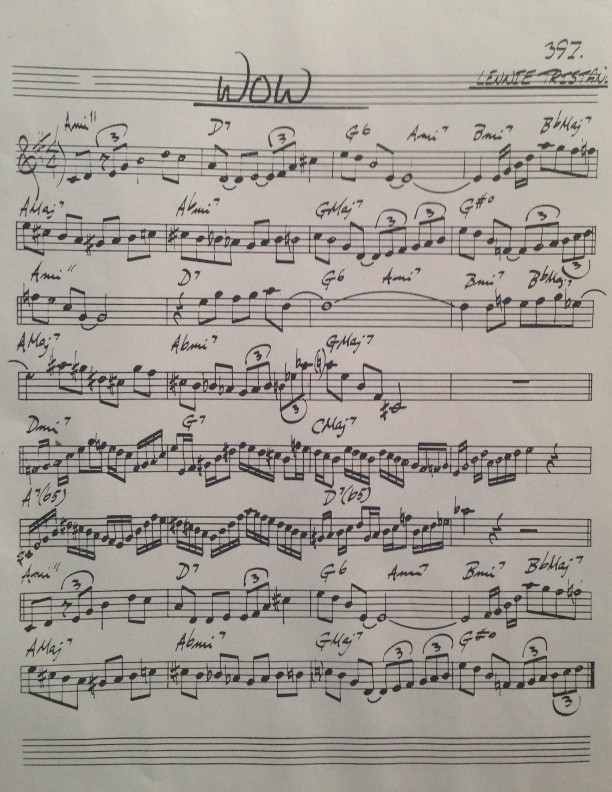 397.
LENNIE TRISTAN.
WOW
Ami11 3 D7 3 G6 Ami7 Bmi7 BbMaj7
4 4
AMaj7 Abmi7 GMaj7 3 3 G#o 3 3
Ami11 D7 G6 Ami7 Bmi7 BbMaj7
AMaj7 Abmi7 3 3 GMaj7
Dmi7 G7 CMaj7
A7(b5) D7(b5)
Ami11 3 D7 3 G6 Ami7 Bmi7 BbMaj7
AMaj7 Abmi7 GMaj7 3 3 G#o 3 3